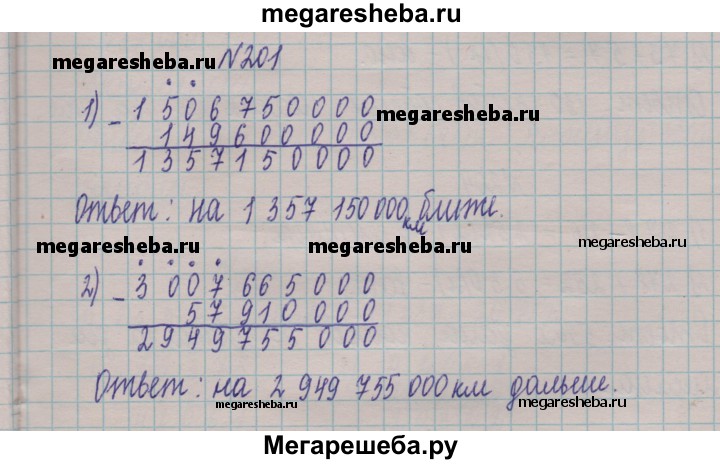 megaresheba.ru
megaresheba.ru №201
1) - 1506750000 megaresheba.ru
149600000
1357150000
Ответ: на 1 357 150 000 км ближе.
megaresheba.ru megaresheba.ru megaresheba.ru
2) - 3007665000
57910000
2949755000
Ответ: на 2 949 755 000 км дальше.
megaresheba.ru megaresheba.ru
Мегарешеба.ру